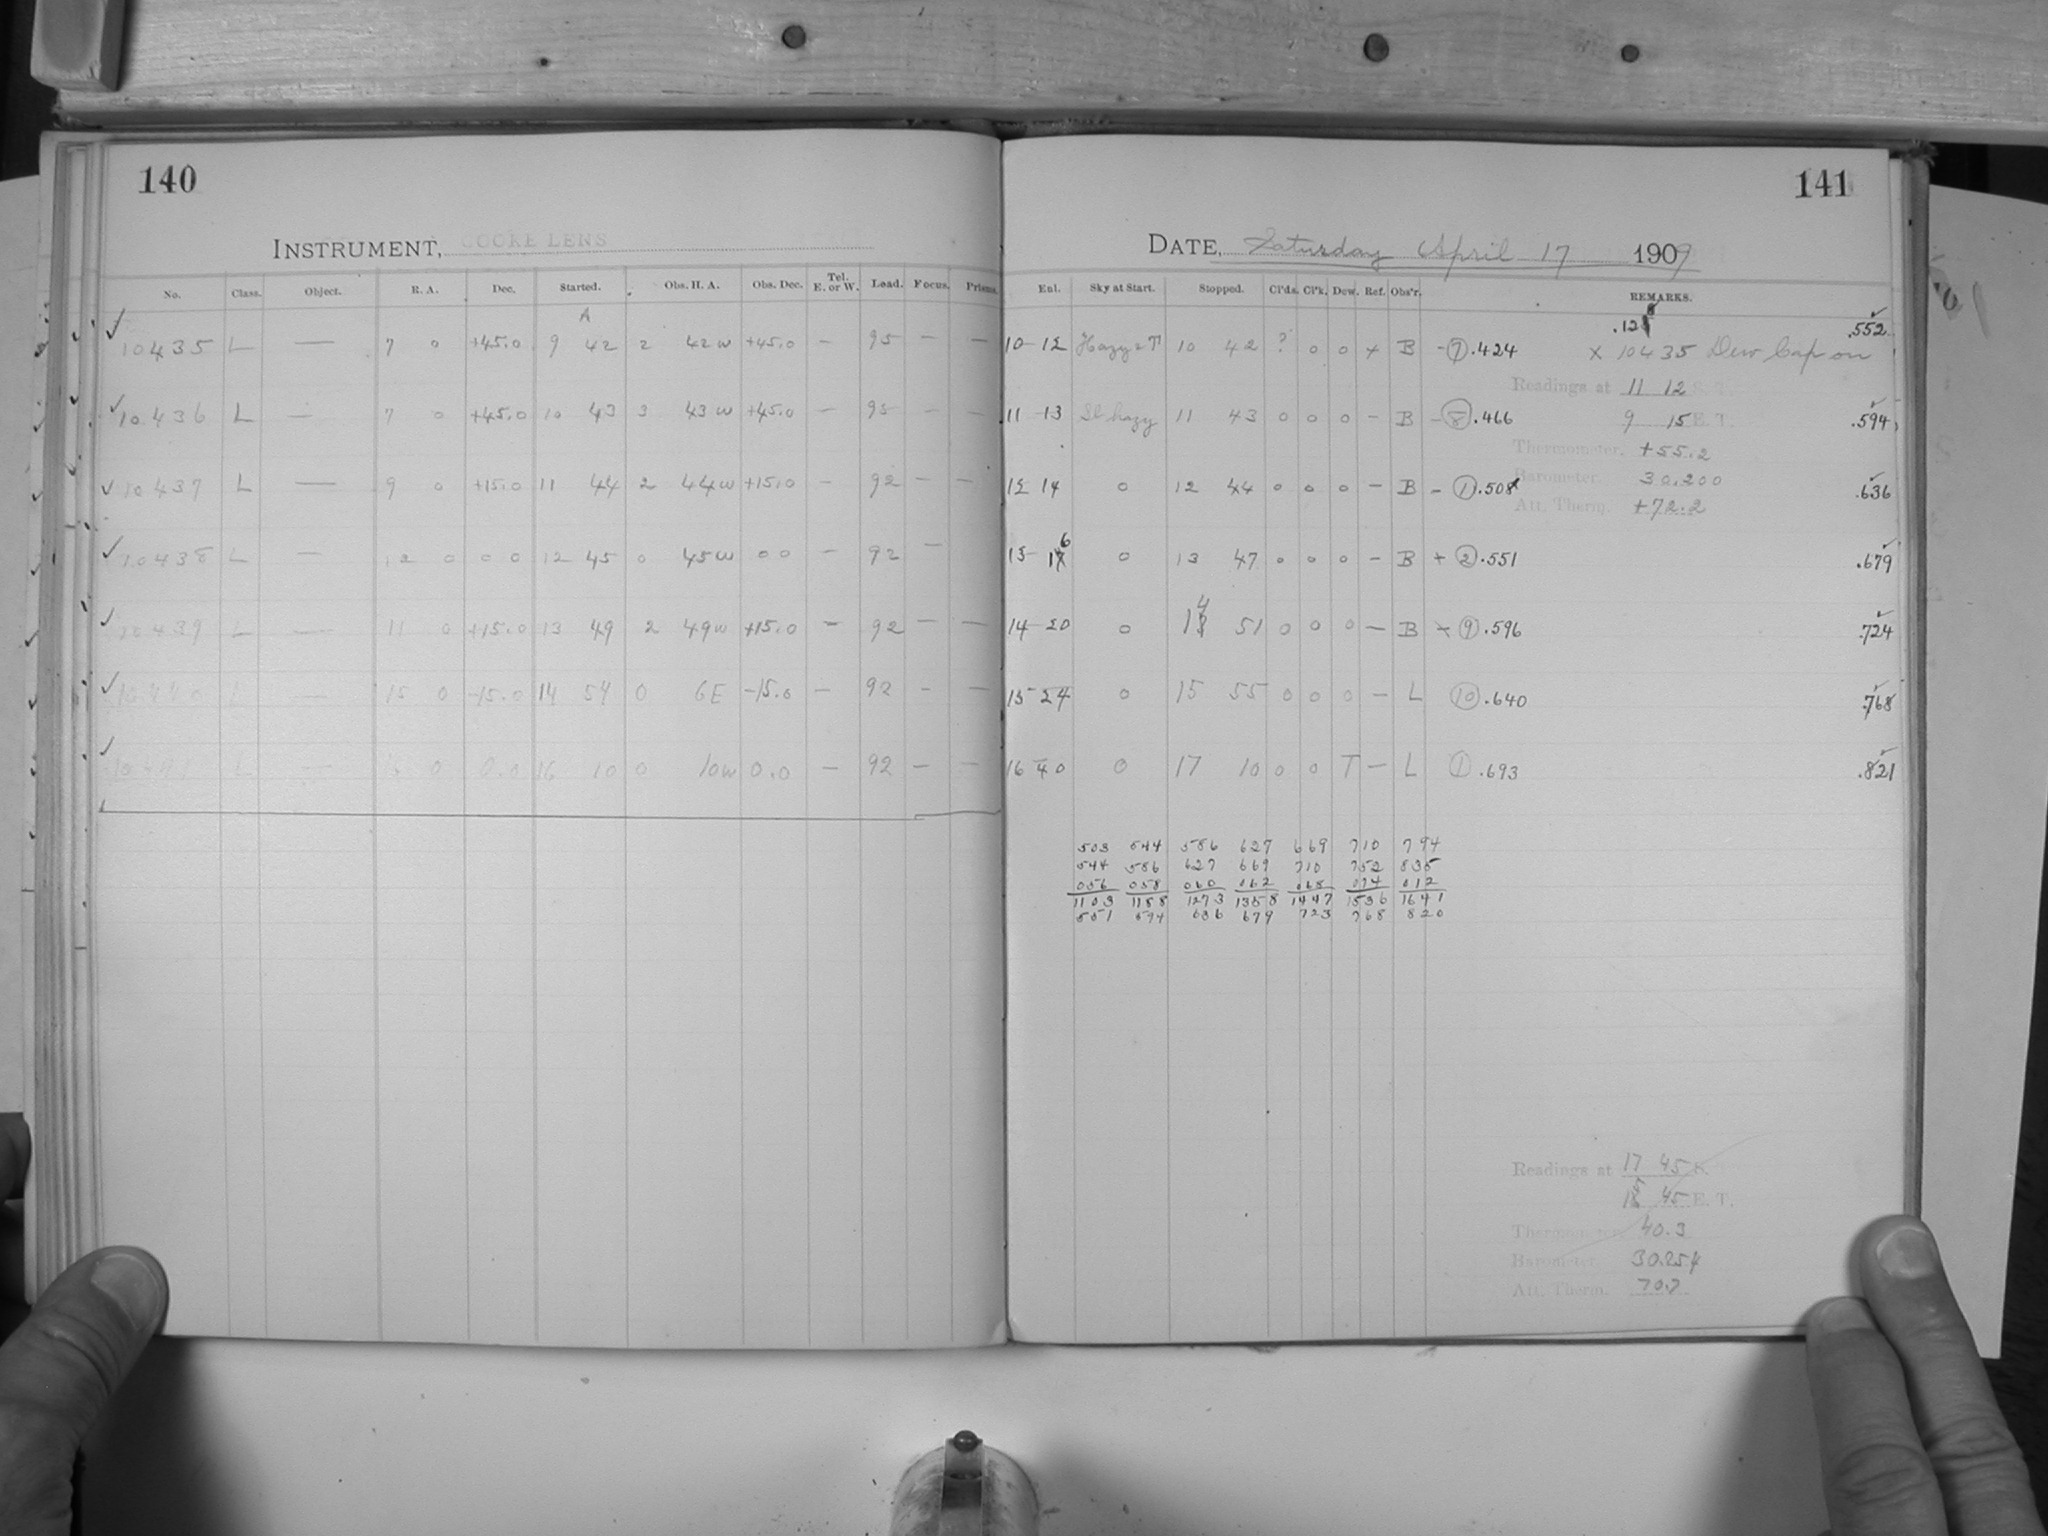 140
INSTRUMENT, COOKE LENS
No. Class. Object. R. A. Dec. Started. Obs. H. A. Obs. Dec. Tel. E. or W. Load. Focus. Prisms.
A
✓ 10435 L — 7 0 +45.0 9 42 2 42w +45.0 – 95 – –
✓ 10436 L — 7 0 +45.0 10 43 3 43w +45.0 – 95 – –
✓ 10437 L — 9 0 +15.0 11 44 2 44w +15.0 – 92 – –
✓ 10438 L — 12 0 0 0 12 45 0 45w 0 0 – 92 –
✓ 10439 L — 11 0 +15.0 13 49 2 49w +15.0 – 92 – –
✓ 10440 L — 15 0 -15.0 14 54 0 6E -15.0 – 92 – –
✓ 10441 L — 16 0 0.0 16 10 0 10w 0.0 – 92 – –
141
DATE, Saturday April 17 1909
Eul. Sky at Start. Stopped. Cl'ds. Cl'k. Dew. Ref. Obs'r. REMARKS.
.128 .552
10-12 Hazy & T 10 42 ? 0 0 x B -(7).424 x 10435 Dew Cap on
Readings at 11 12 S. T.
11-13 Sl hazy 11 43 0 0 0 – B -(8).466 9 15 E. T. .594
Thermometer, +55.2
12 14 0 12 44 0 0 0 – B -(1).508 Barometer, 30.200 .636
Att. Therm. +72.2
13-16 0 13 47 0 0 0 – B +(2).551 .679
14-20 0 14 51 0 0 0 – B (9).596 .724
15-24 0 15 55 0 0 0 – L (10).640 .768
16 40 0 17 10 0 0 T – L (1).693 .821
503 544 586 627 669 710 794
544 586 627 669 710 752 835
056 058 060 062 068 074 012
1103 1188 1273 1358 1447 1536 1641
551 594 636 679 723 768 820
Readings at 17 45 S.
15 45 E. T.
Thermometer, 40.3
Barometer, 30.254
Att. Therm. 70.7